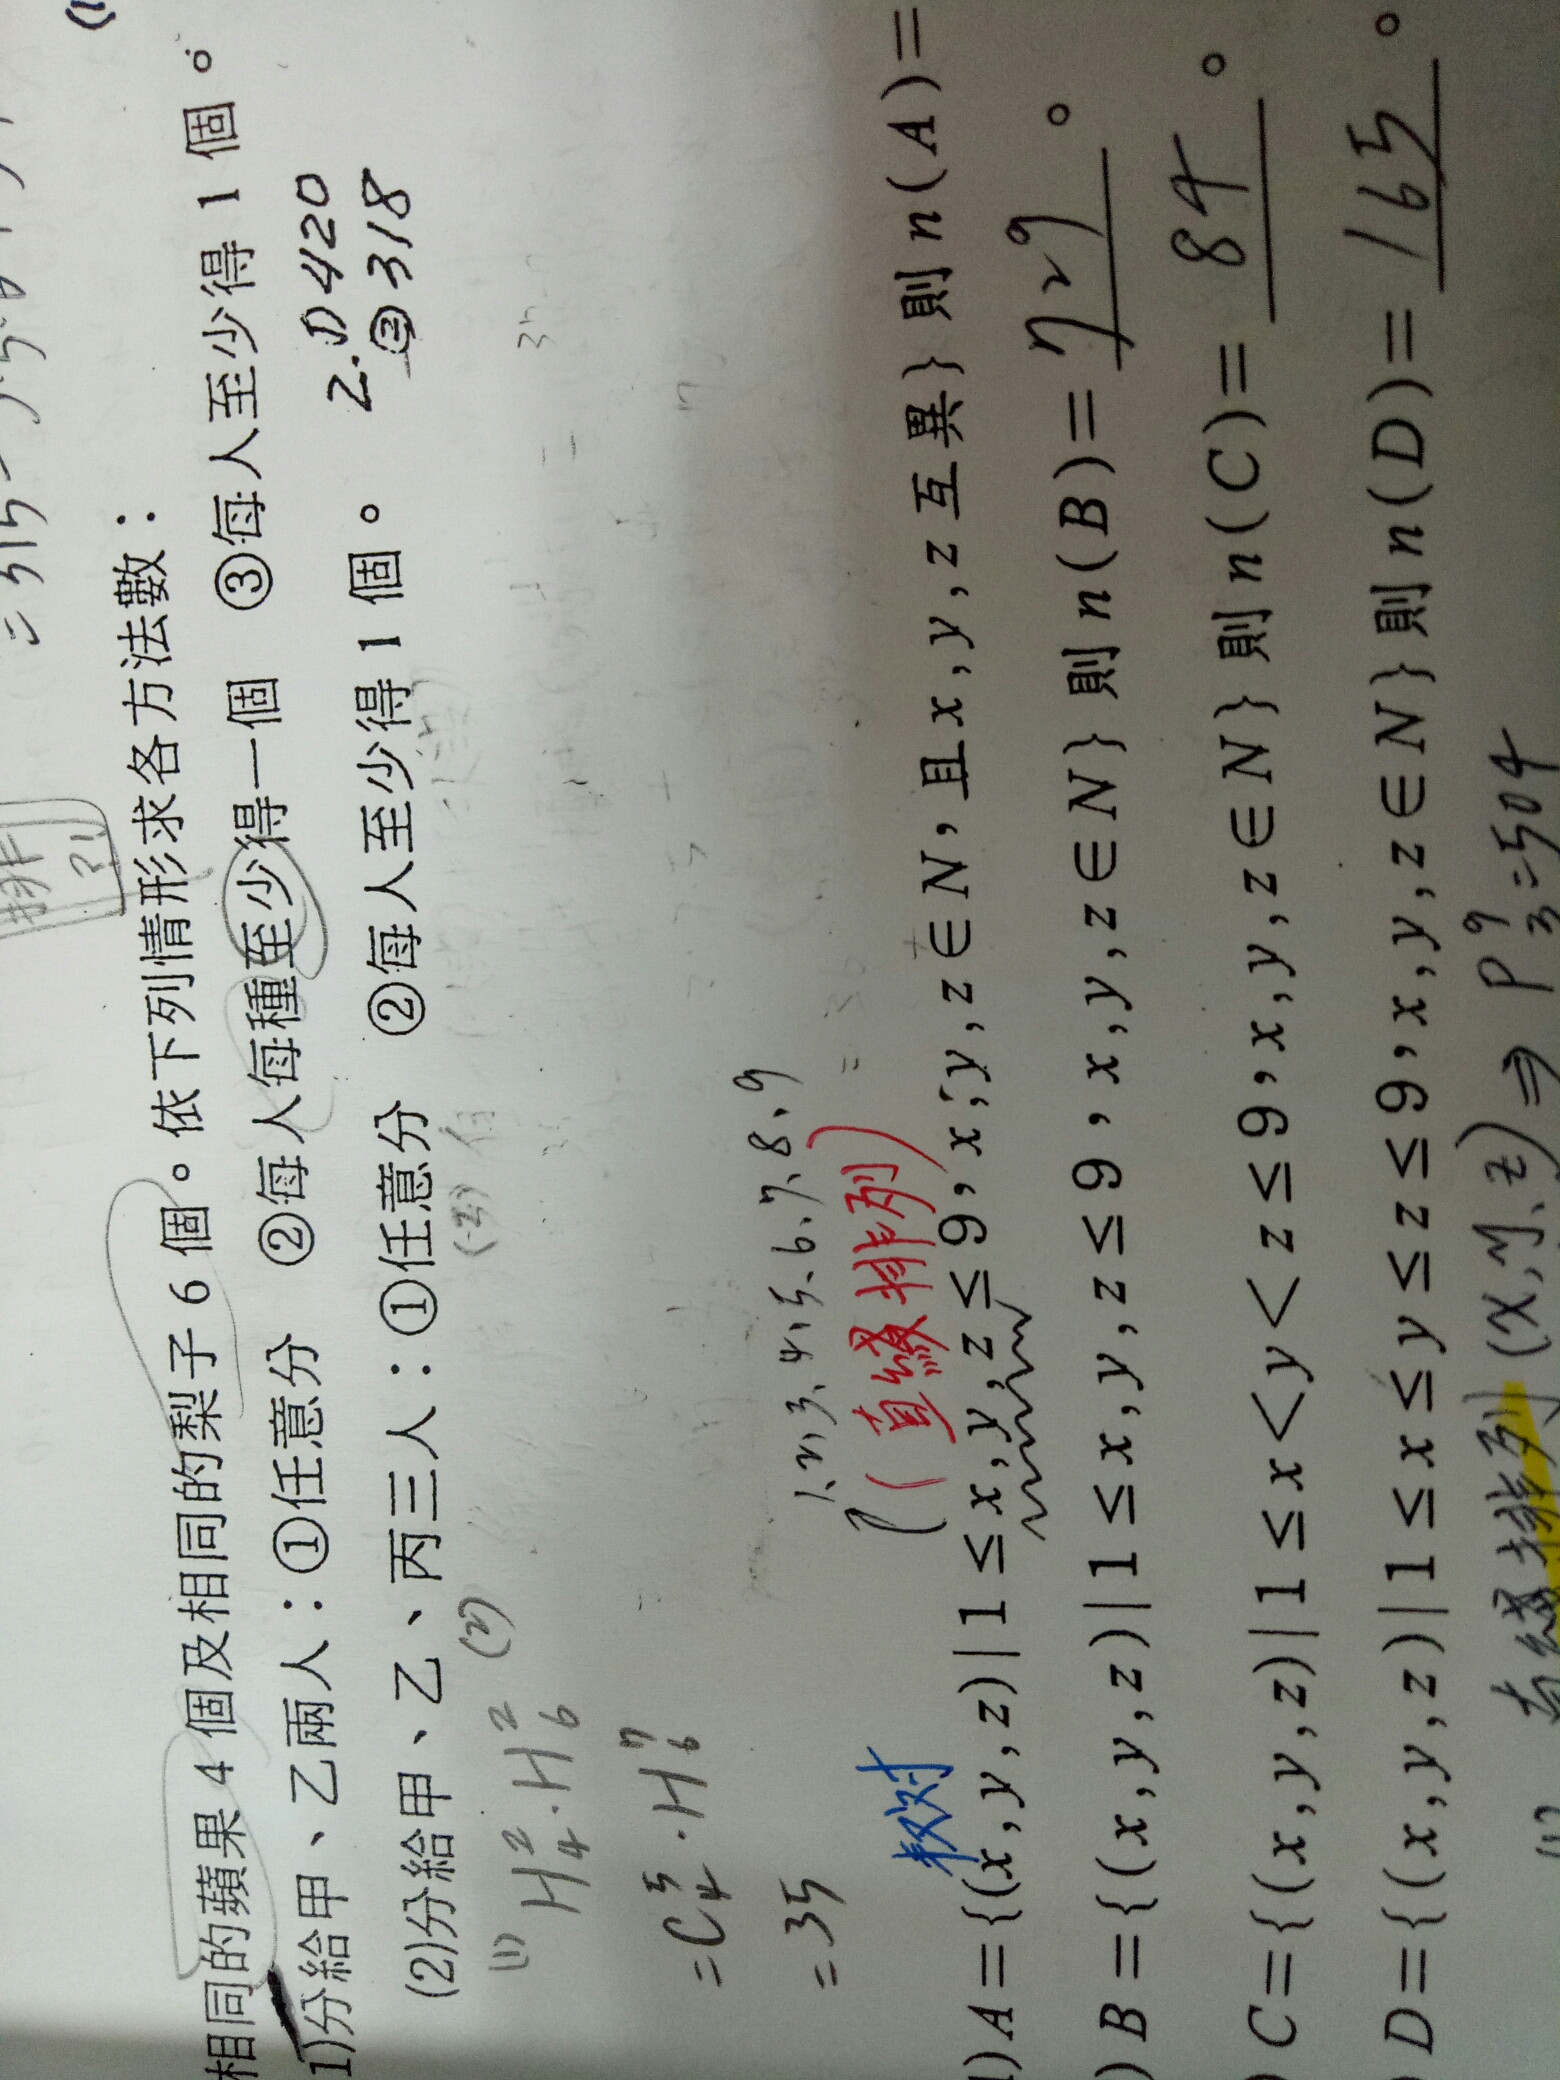 =315
排
相同的蘋果4個及相同的梨子6個。依下列情形求各方法數：
1)分給甲、乙兩人：①任意分 ②每人每種至少得一個 ③每人至少得1個。
(2)分給甲、乙、丙三人：①任意分 ②每人至少得1個。
2.① 420
② 318
(1) H²₄·H²₆ (2)
=C⁵₄·H⁷₆
=35
1、2、3、4、5、6、7、8、9
(直綫排列)
数对
)A={(x,y,z)|1≤x,y,z≤9,x,y,z∈N,且x,y,z互異}則n(A)=
)B={(x,y,z)|1≤x,y,z≤9,x,y,z∈N}則n(B)=729。
)C={(x,y,z)|1≤x<y<z≤9,x,y,z∈N}則n(C)=84。
D={(x,y,z)|1≤x≤y≤z≤9,x,y,z∈N}則n(D)=165。
綫排列 (x,y,z)⇒P⁹₃=504